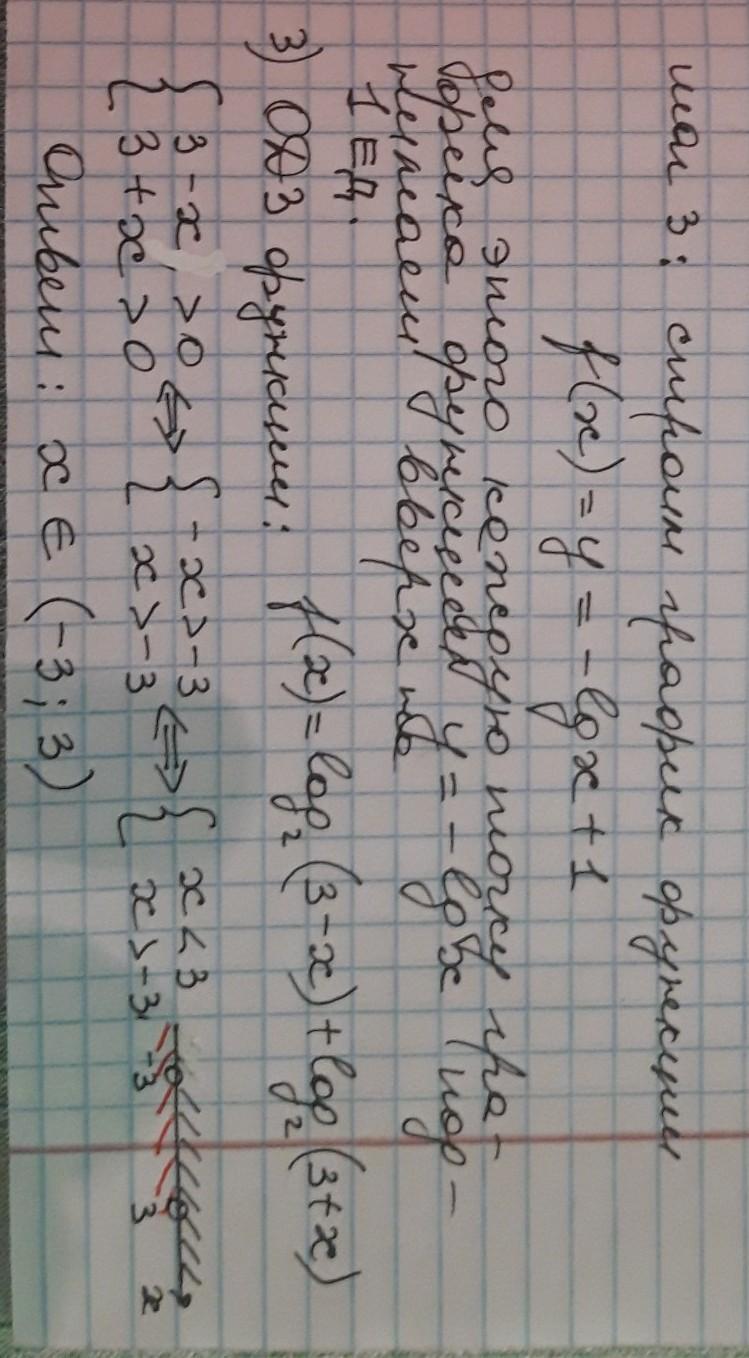 шаг 3: строим график функции
f(x) = y = -lg x + 1
Для этого каждую точку гра-
фика функцией y = -lg x под-
нимаем вверх на
1 ед.
3) ОДЗ функции: f(x) = log₂(3-x) + log₂(3+x)
{ 3-x > 0 ⇔ { -x > -3 ⇔ { x < 3
{ 3+x > 0 { x > -3 { x > -3
-3 3 x
Ответ: x ∈ (-3; 3)